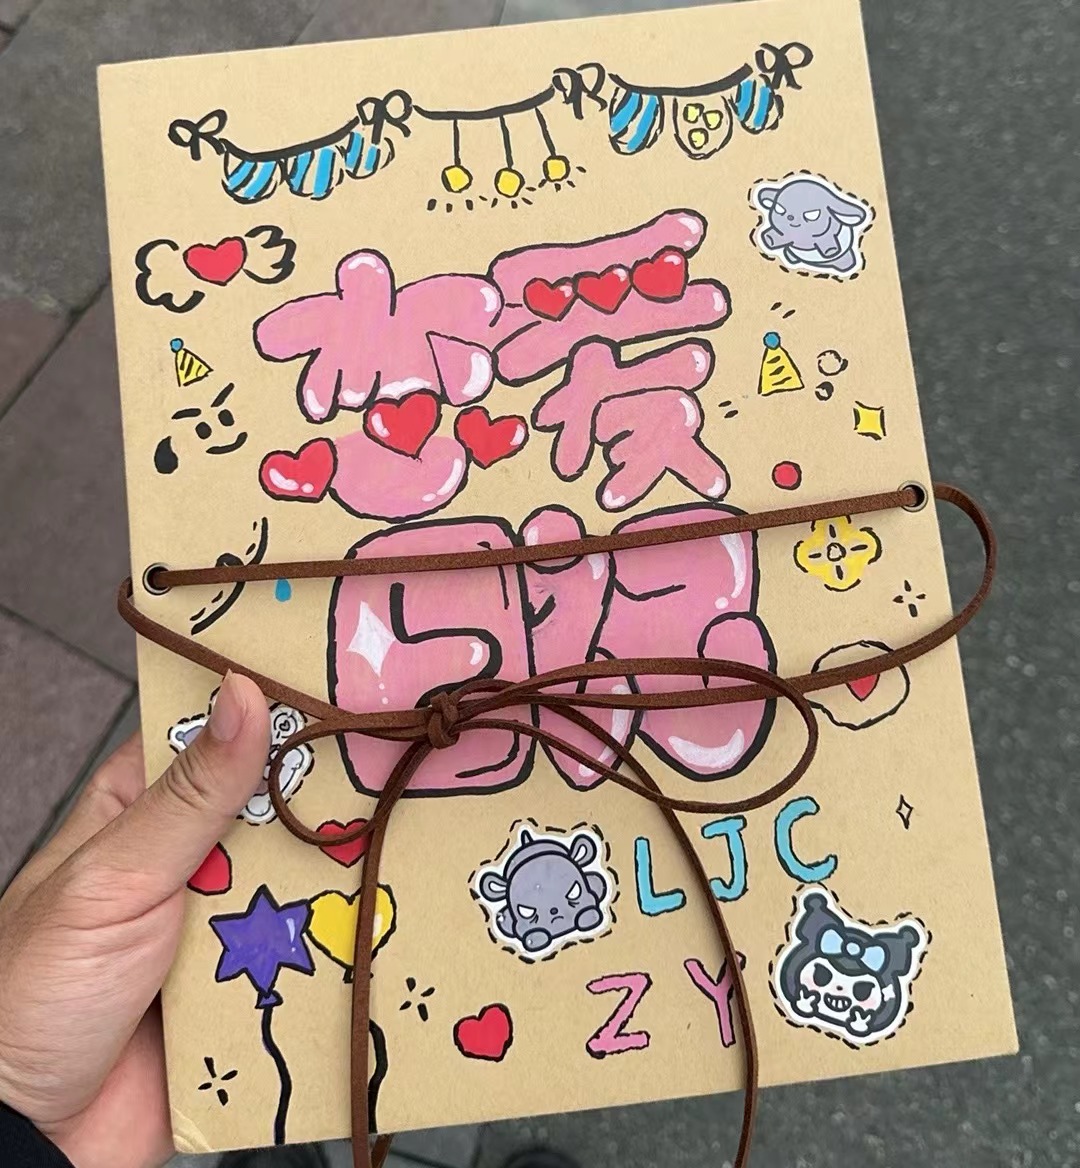 恋爱
日记
LJC
ZY